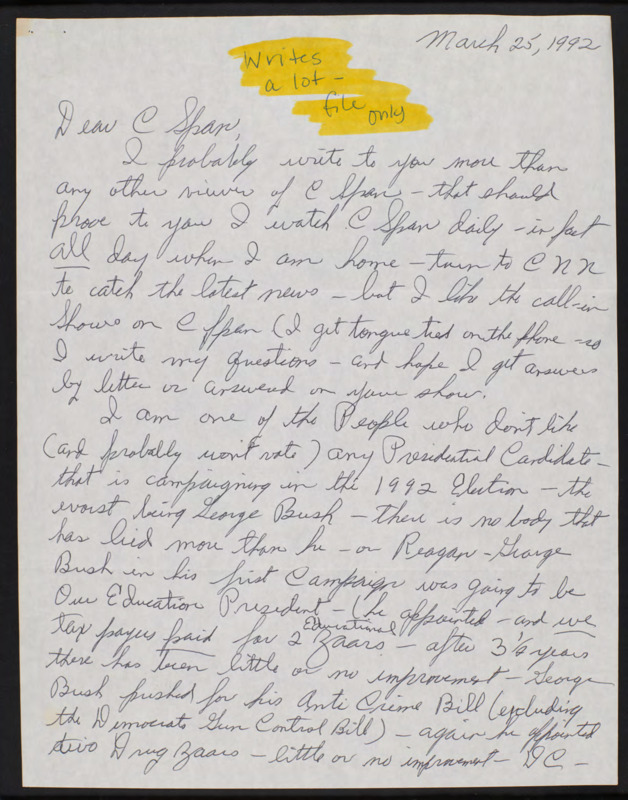 March 25, 1992
Writes
a lot -
file
only
Dear C Span,
I probably write to you more than
any other viewer of C Span - that should
prove to you I watch C Span daily - in fact
all day when I am home - turn to C N N
to catch the latest news - but I like the call-in
Shows on C Span (I get tongue tied on the phone - so
I write my questions - and hope I get answers
by letter or answered on your show.
I am one of the People who don't like
(and probably won't vote) any Presidential Candidate -
that is campaigning in the 1992 Election - the
worst being George Bush - there is no body that
has lied more than he - or Reagan - George
Bush in his first Campaign was going to be
Our Education President - (he appointed - and we
tax payers paid for 2 Educational Zaars - after 3 1/2 years
there has been little or no improvement - George
Bush pushed for his Anti Crime Bill (excluding
the Democrats Gun Control Bill) - again he appointed
two Drug Zaars - little or no improvement - DC -